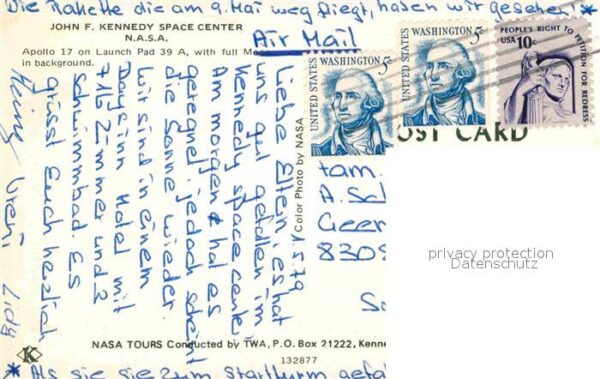 Die Rakette die am 9. Mai weg fliegt, haben wir gesehen! *
JOHN F. KENNEDY SPACE CENTER
N.A.S.A.
Apollo 17 on Launch Pad 39 A, with full Moon
in background.
Air Mail
UNITED STATES
WASHINGTON 5c
UNITED STATES
WASHINGTON 5c
PEOPLE'S RIGHT TO PETITION FOR REDRESS
USA 10c
POST CARD
Liebe Eltern, es hat
uns gut gefallen im
Kennedy space center
Am morgen hat es
geregnet jedoch scheint
die Sonne wieder.
Wir sind in einem
Daysinn Hotel mit
716 Zimmer und 2
Schwimmbad. Es
grüsst Euch herzlich
Heinz Vreni
Color Photo by NASA
Fam.
A. Sch
Geer
8309
privacy protection
Datenschutz
NASA TOURS Conducted by TWA, P.O. Box 21222, Kenne
132877
K
* Als sie sie zum Startturm gefa